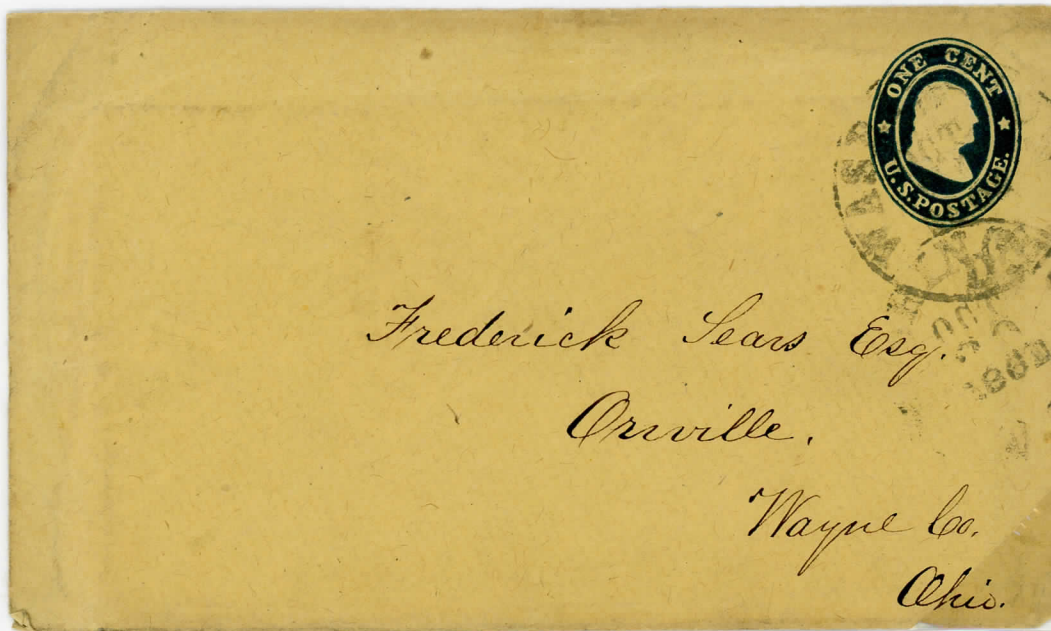 ONE CENT
U.S. POSTAGE.
WASH
OCT
1862
Frederick Sears Esq.
Orrville.
Wayne Co.
Ohio.